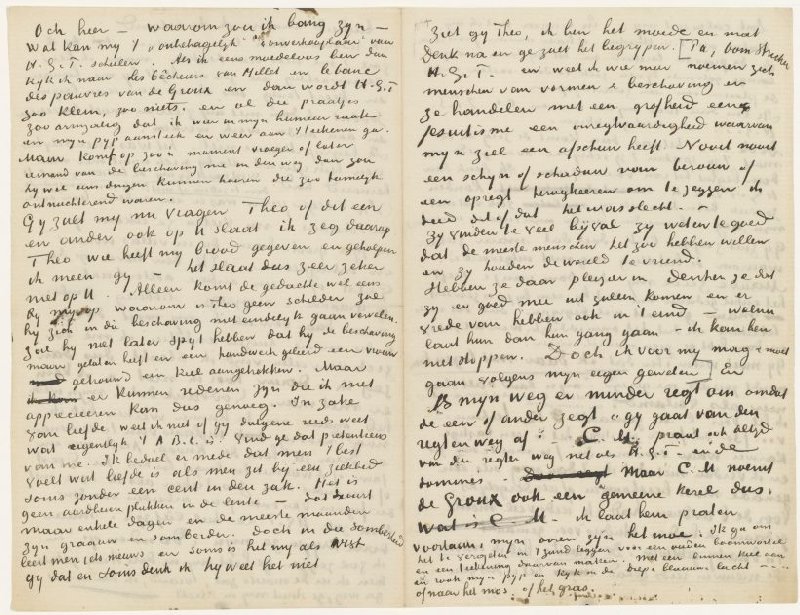 Och heer — waarom zou ik bang zyn —
Wat kan my 't „onbehagelyk" „onverkoopbaar" van
H.G.T. schelen. Als ik eens moedeloos ben dan
kyk ik naar des bêcheurs van Millet en le banc
des pauvres van de Groux en dan wordt H.G.T
zoo klein, zoo niets. en al die praatjes
zoo armzalig dat ik weer in myn humeur raak
en myn pyp aansteek en weer aan 't teekenen ga.
Maar komt op zoo'n moment vroeger of later
iemand van de beschaving me in den weg dan zou
hy wel eens dingen kunnen hooren die zoo tamelyk
ontnuchterend waren.
Gy zult my nu vragen Theo of dit een
en ander ook op U slaat ik zeg daarop
Theo wie heeft my brood gegeven en geholpen
ik meen gy — het slaat dus zeer zeker
niet op U. Alleen komt de gedachte wel eens
by my op waarom is Theo geen schilder zal
hy zich in die beschaving niet eindelyk gaan vervelen.
Zal hy niet later spyt hebben dat hy de beschaving
maar gelaten heeft en een handwerk geleerd een vrouw
getrouwd een kiel aangetrokken. Maar
er kunnen redenen zyn die ik niet
apprecieeren kan dus genoeg. In zake
van liefde weet ik niet of gy datgene reeds weet
wat eigentlyk 't A B C is. Vind ge dat pretentieus
van me. Ik bedoel er mede dat men 't best
voelt wat liefde is als men zit by een ziekbed
soms zonder een cent in den zak. Het is
geen aardbeien plukken in de lente — dat duurt
maar enkele dagen en de meeste maanden
zyn graauw en somberder. Doch in die somberheid
leert men iets nieuws en soms is het my als wist
gy dat en soms denk ik hy weet het niet
Ziet gy Theo, ik ben het moede en moe
denk na en ge zult het begrypen. [Pa, oom Stricker
H.G.T. — en weet ik wie meer noemen zich
menschen van vormen & beschaving en
ze handelen met een grofheid een
jesuitisme een onregtvaardigheid waarvan
myn ziel een afschuw heeft. Nooit nooit
een schyn of schaduw van berouw of
een opregt terugkeeren om te zeggen ik
deed dit of dat het was slecht. —
Zy vinden te veel byval zy weten te goed
dat de meeste menschen het zoo hebben willen
en zy houden de wereld te vriend.
Hebben ze daar pleizier in Denken ze dat
zy er goed mee uit zullen komen en er
vrede van hebben ook in 't eind — welnu
laat hun dan hun gang gaan — ik kan hen
niet stoppen. Doch ik voor my mag & moet
gaan volgens myn eigen geweten] En
is myn weg er minder regt om omdat
de een of ander zegt „gy gaat van den
regten weg af" — C.M. praat ook altyd
van die regten weg net als H.G.T. en de
dominés — Maar C.M noemt
de Groux ook een „gemeene kerel" dus.
wat is C M — ik laat hem praten
voortaan, myn ooren zyn het moe. Ik ga om
het te vergeten in 't zand liggen voor een ouden boomwortel
en een teekening daarvan maken. met een linnen kiel aan
en rook myn pyp en kyk in de diepe blaauwe lucht —
of naar het mos of het gras.